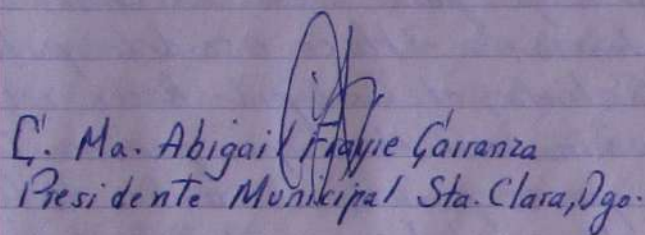 C. Ma. Abigail Frayre Carranza
Presidente Municipal Sta. Clara, Dgo.